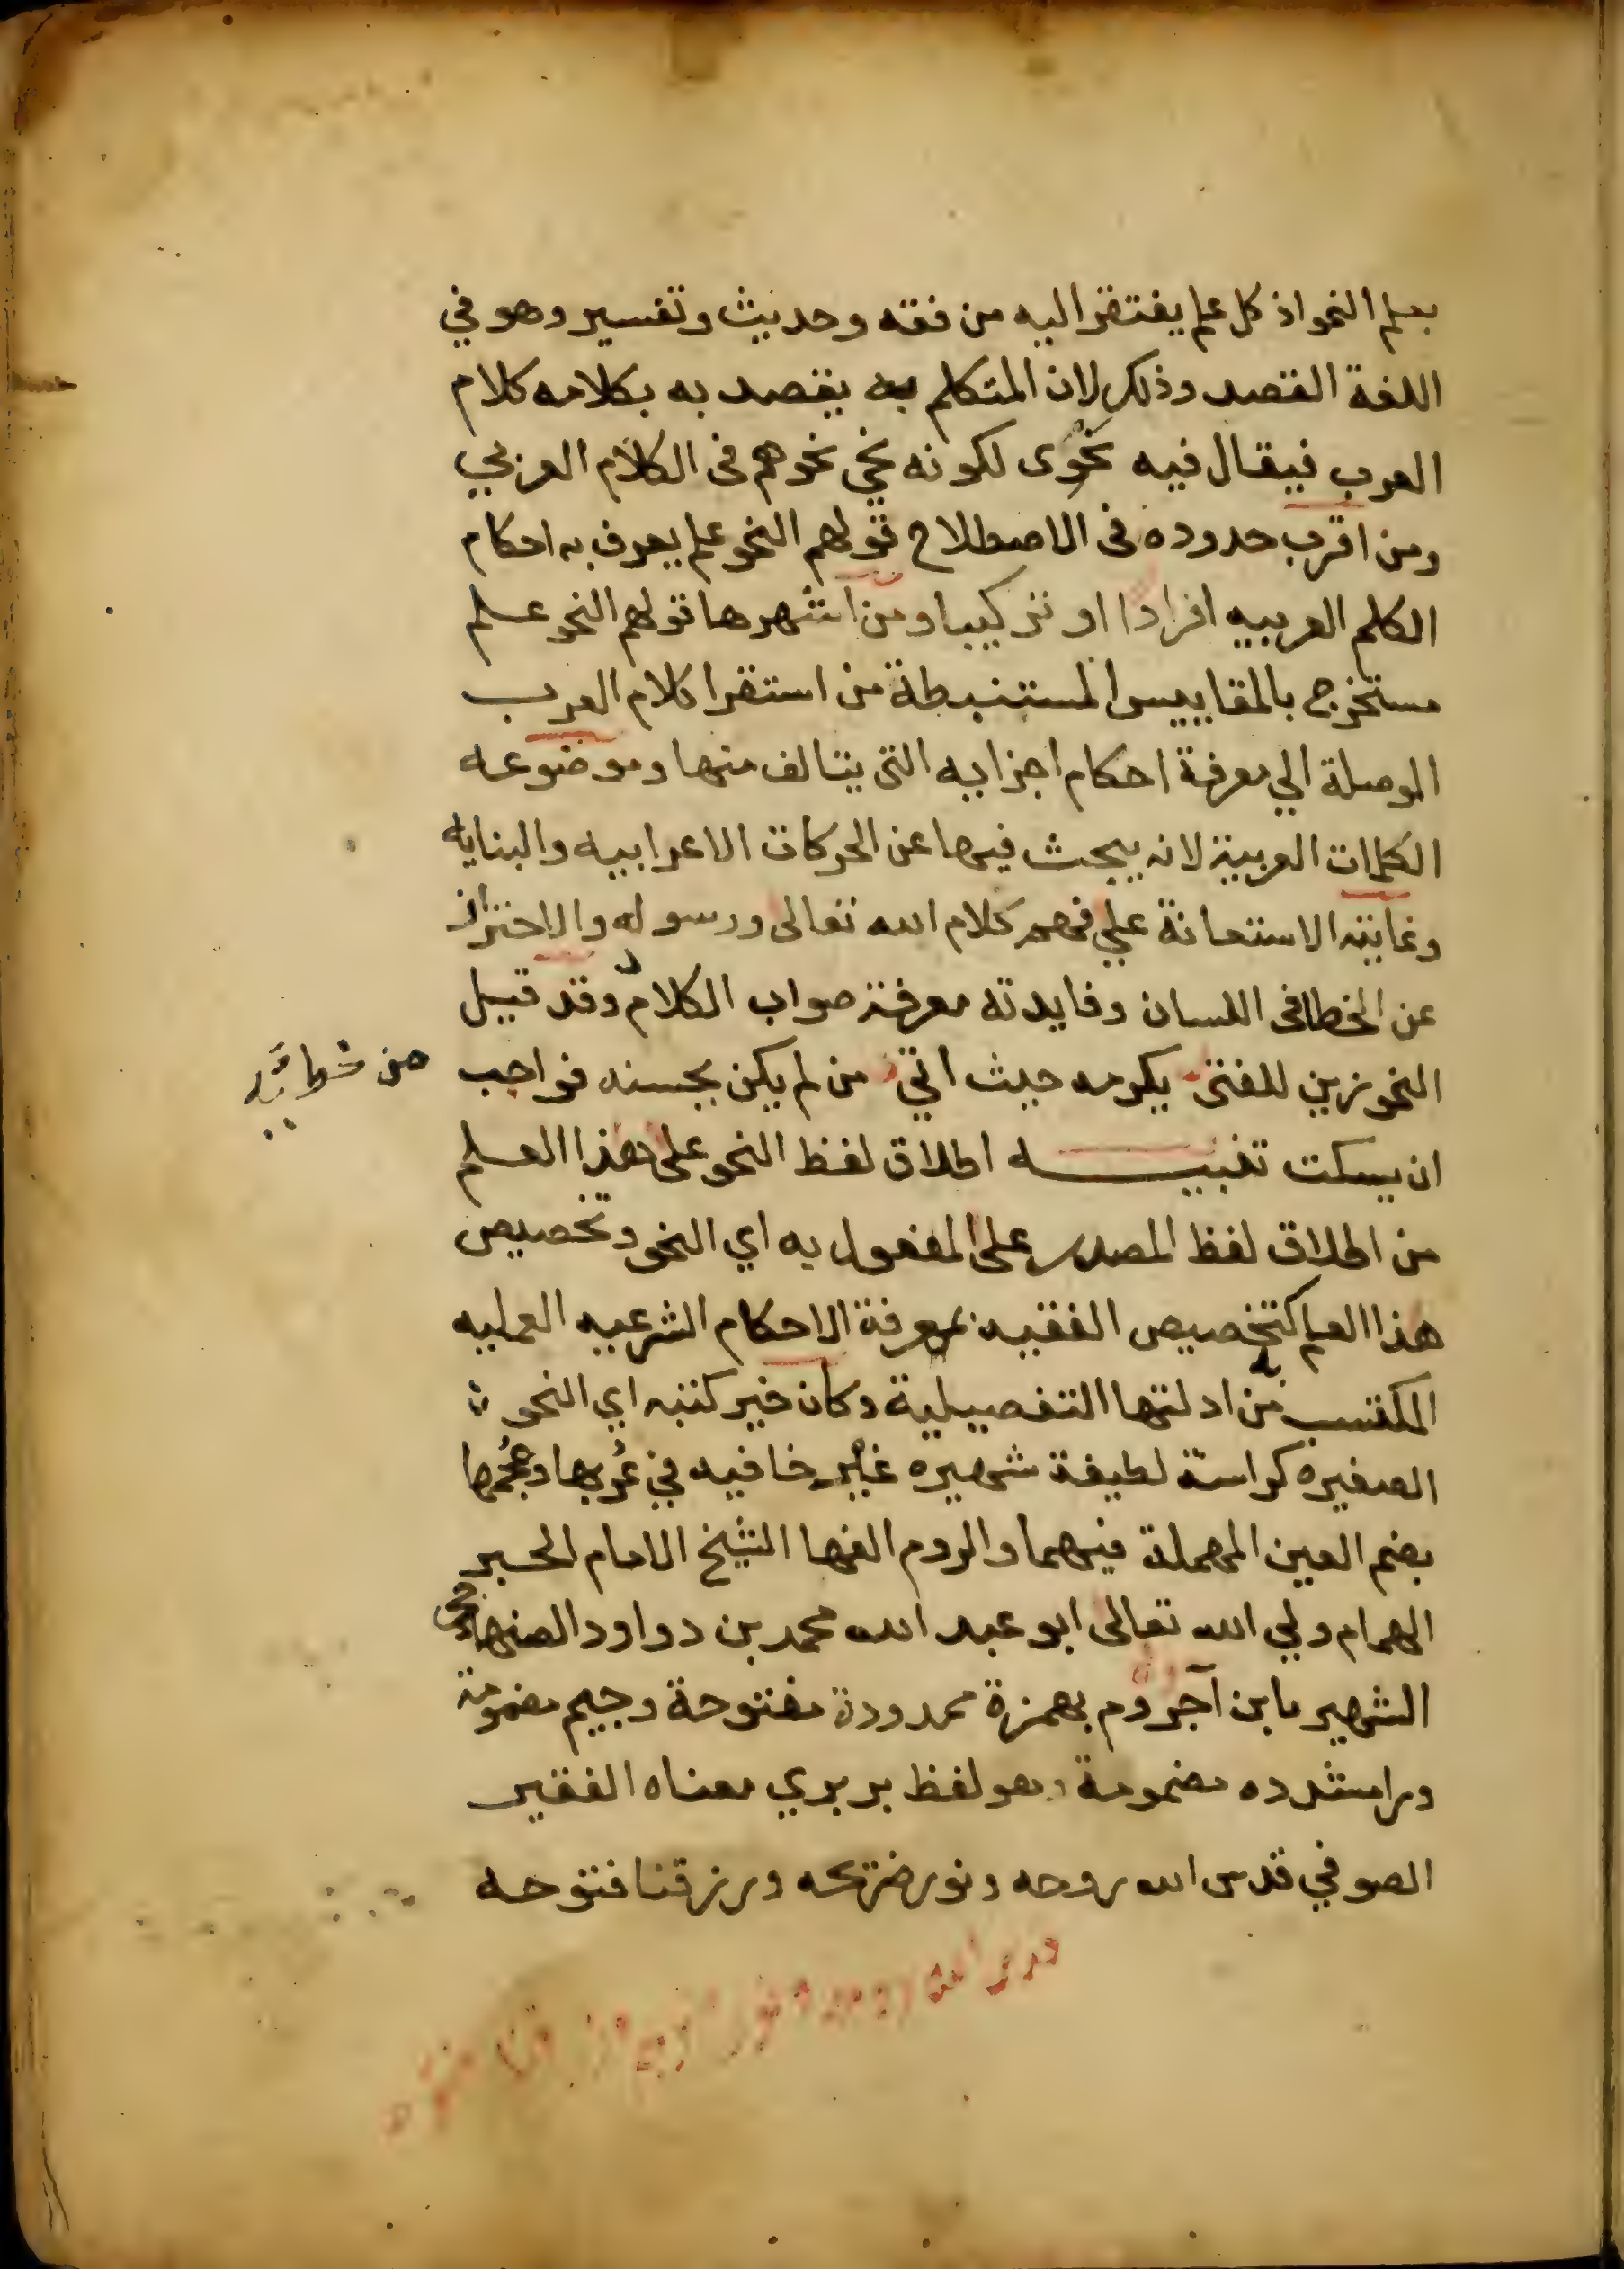 بعلم النحو اذ كل علم يفتقر اليه من فقه وحديث وتفسير وهو في
اللغة القصد وذلك لان المتكلم به يقصد به بكلامه كلام
العرب فيقال فيه نحوى لكونه نحي نحوهم فى الكلام العربي
ومن اقرب حدوده فى الاصطلاح قولهم النحو علم يعرف به احكام
الكلم العربيه افرادا او تركيبا ومن اشهرها قولهم النحو علم
مستخرج بالمقاييس المستنبطة من استقرا كلام العرب
الموصلة الي معرفة احكام اجزايه التى يتالف منها وموضوعه
الكلمات العربية لانه يبحث فيها عن الحركات الاعرابيه والبنايه
وغايته الاستعانة علي فهم كلام الله تعالى ورسوله والاحتراز
عن الخطا فى اللسان وفايدته معرفة صواب الكلام وقد قيل
النحو زين للفتى يكرمه حيث اتي من لم يكن يحسنه فواجب
ان يسكت تنبيه اطلاق لفظ النحو على هذا العلم
من اطلاق لفظ المصدر على المفعول به اي النحو وتخصيص
هذا العلم كتخصيص الفقيه بمعرفة الاحكام الشرعيه العمليه
المكتسب من ادلتها التفصيلية وكان خير كتبه اي النحو
الصغيره كراسة لطيفة شهيره غير خافيه في عُربها وعُجمها
بضم العين المهملة فيهما والروم الفها الشيخ الامام الحبر
الهمام ولي الله تعالى ابو عبد الله محمد بن دواود الصنهاجى
الشهير بابن آجروم بهمزة ممدودة مفتوحة وجيم مضمومة
ورا مشدده مضمومة وهو لفظ بربري معناه الفقير
الصوفي قدس الله روحه ونور ضريحه ورزقنا فتوحه